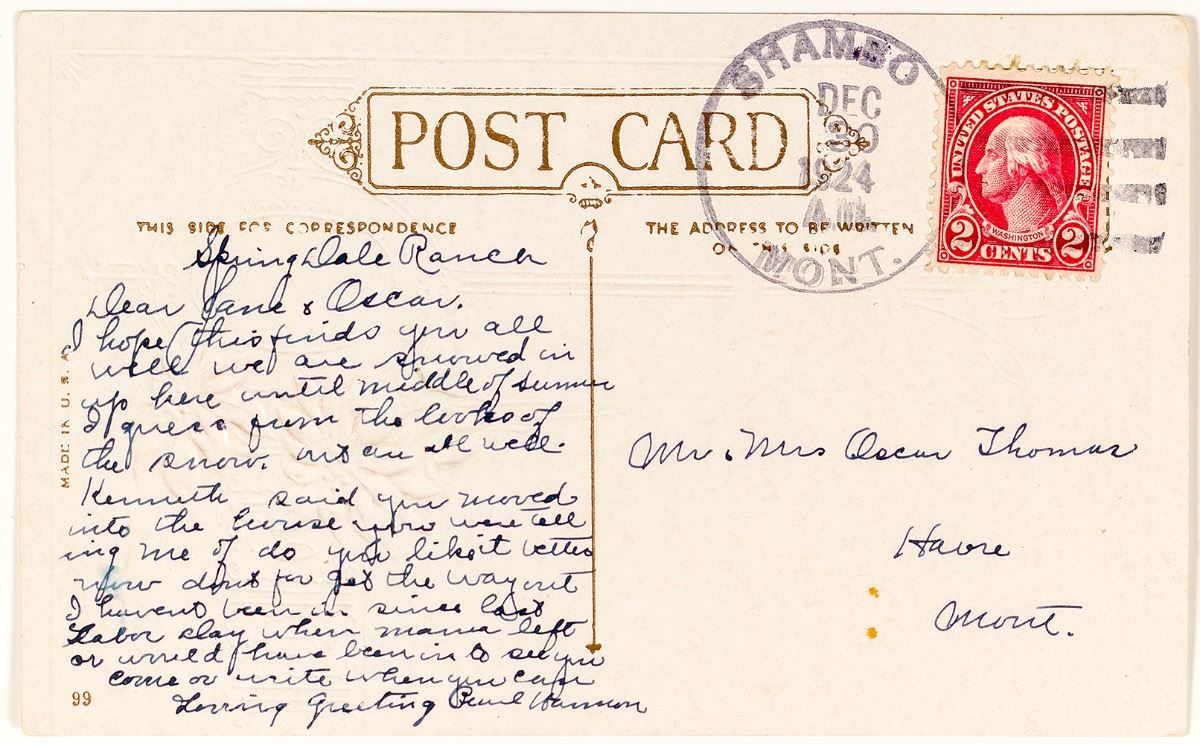 POST CARD
THIS SIDE FOR CORRESPONDENCE
THE ADDRESS TO BE WRITTEN
ON THIS SIDE
SHAMBO
DEC
30
1924
A.M.
MONT.
UNITED STATES POSTAGE
WASHINGTON
2 CENTS 2
Spring Dale Ranch
Dear Jane & Oscar.
I hope this finds you all
well we are snowed in
up here until middle of summer
I guess from the looks of
the snow. but are all well.
Kenneth said you moved
into the house you were tell
ing me of do you like it better
now dont for get the way out
I havent been in since last
Labor day when mama left
or would have been in to see you
come or write when you can
Loving Greeting Pearl Hannon
MADE IN U.S.A.
99
Mr. & Mrs Oscar Thomas
Havre
Mont.